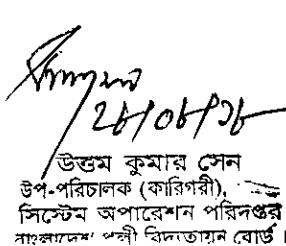 ২৮/০৮/১৮
উত্তম কুমার সেন
উপ-পরিচালক (কারিগরী),
সিস্টেম অপারেশন পরিদপ্তর
বাংলাদেশ পল্লী বিদ্যুতায়ন বোর্ড।